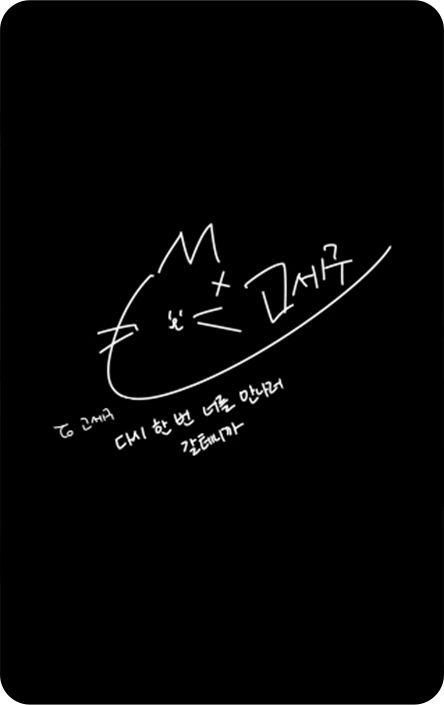 고세구
To 고세구
다시 한 번 너를 만나러
갈테니까